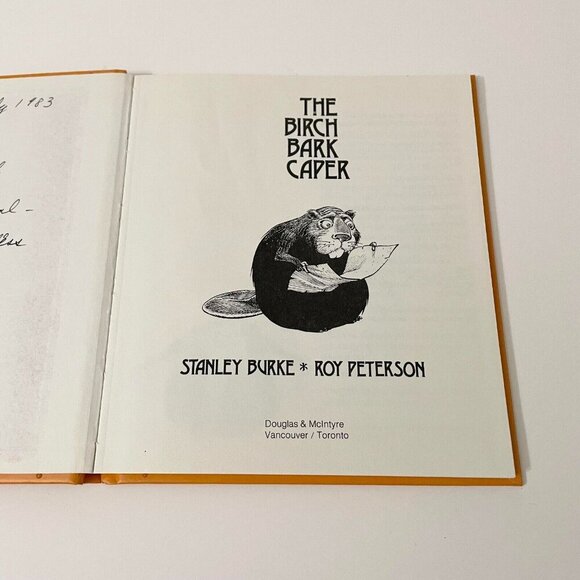 1983
THE
BIRCH
BARK
CAPER
STANLEY BURKE * ROY PETERSON
Douglas & McIntyre
Vancouver / Toronto